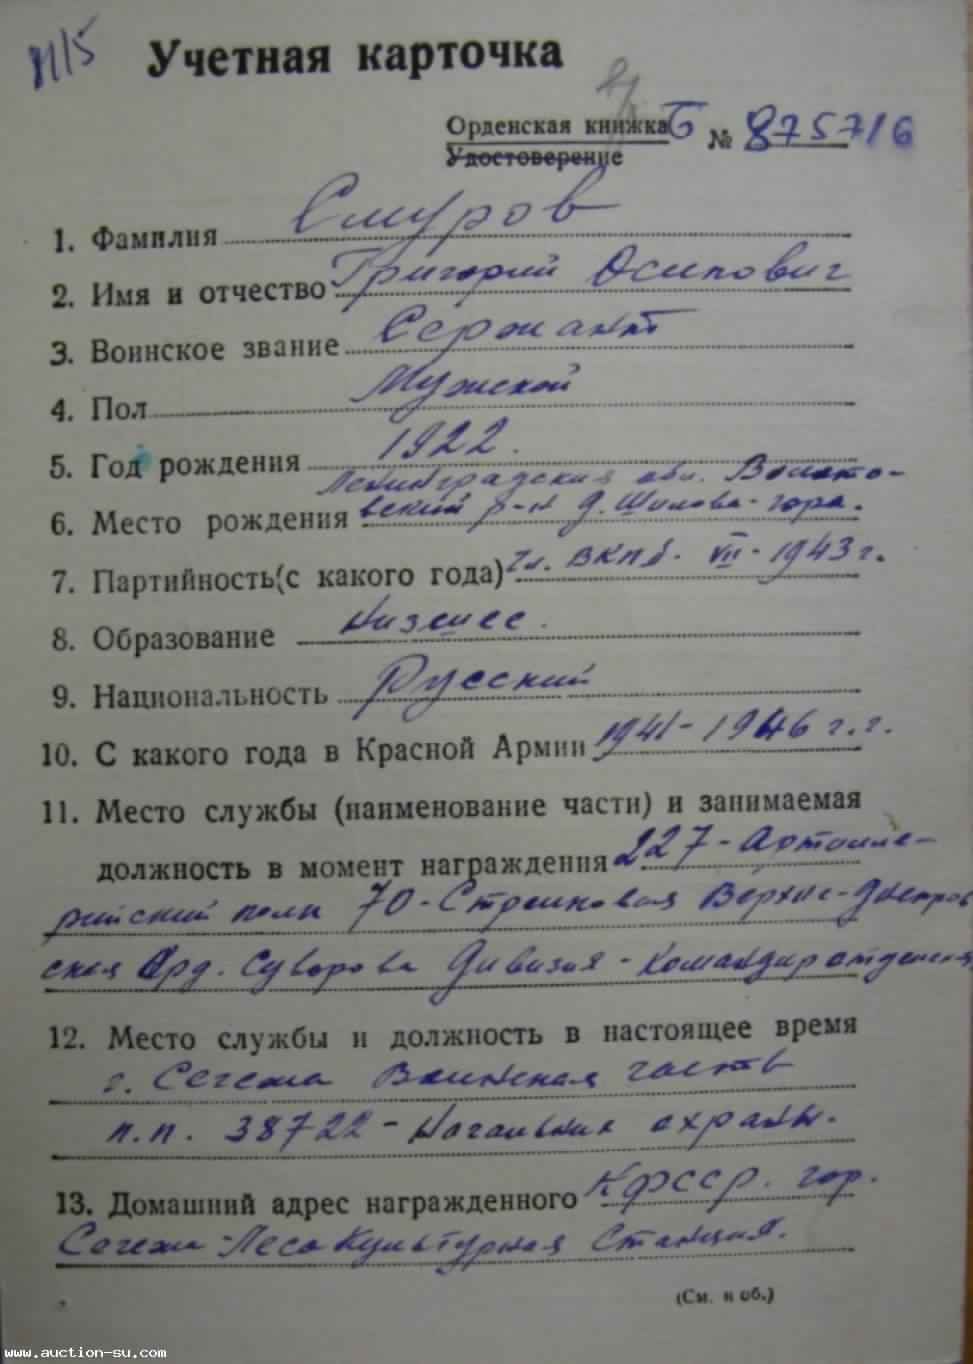 М/5
Учетная карточка
Орденская книжка Б № 875716
Удостоверение
1. Фамилия Смуров
2. Имя и отчество Григорий Осипович
3. Воинское звание Сержант
4. Пол Мужской
5. Год рождения 1922.
Ленинградская обл. Волото-
6. Место рождения вский р-н д. Шилова-гора.
7. Партийность(с какого года) чл. ВКПб. VII-1943 г.
8. Образование Низшее.
9. Национальность Русский
10. С какого года в Красной Армии 1941-1946 г.г.
11. Место службы (наименование части) и занимаемая
должность в момент награждения 227-Артилле-
рийский полк 70-Стрелковая Верхне-Днепров
ская Орд. Суворова Дивизия - Командир отделения
12. Место службы и должность в настоящее время
г. Сегежа Воинская часть
п.п. 38722 - Начальник охраны.
13. Домашний адрес награжденного КФССР. гор.
Сегежа - Лесо Культурная Станция.
(См. н об.)
www.auction-su.com